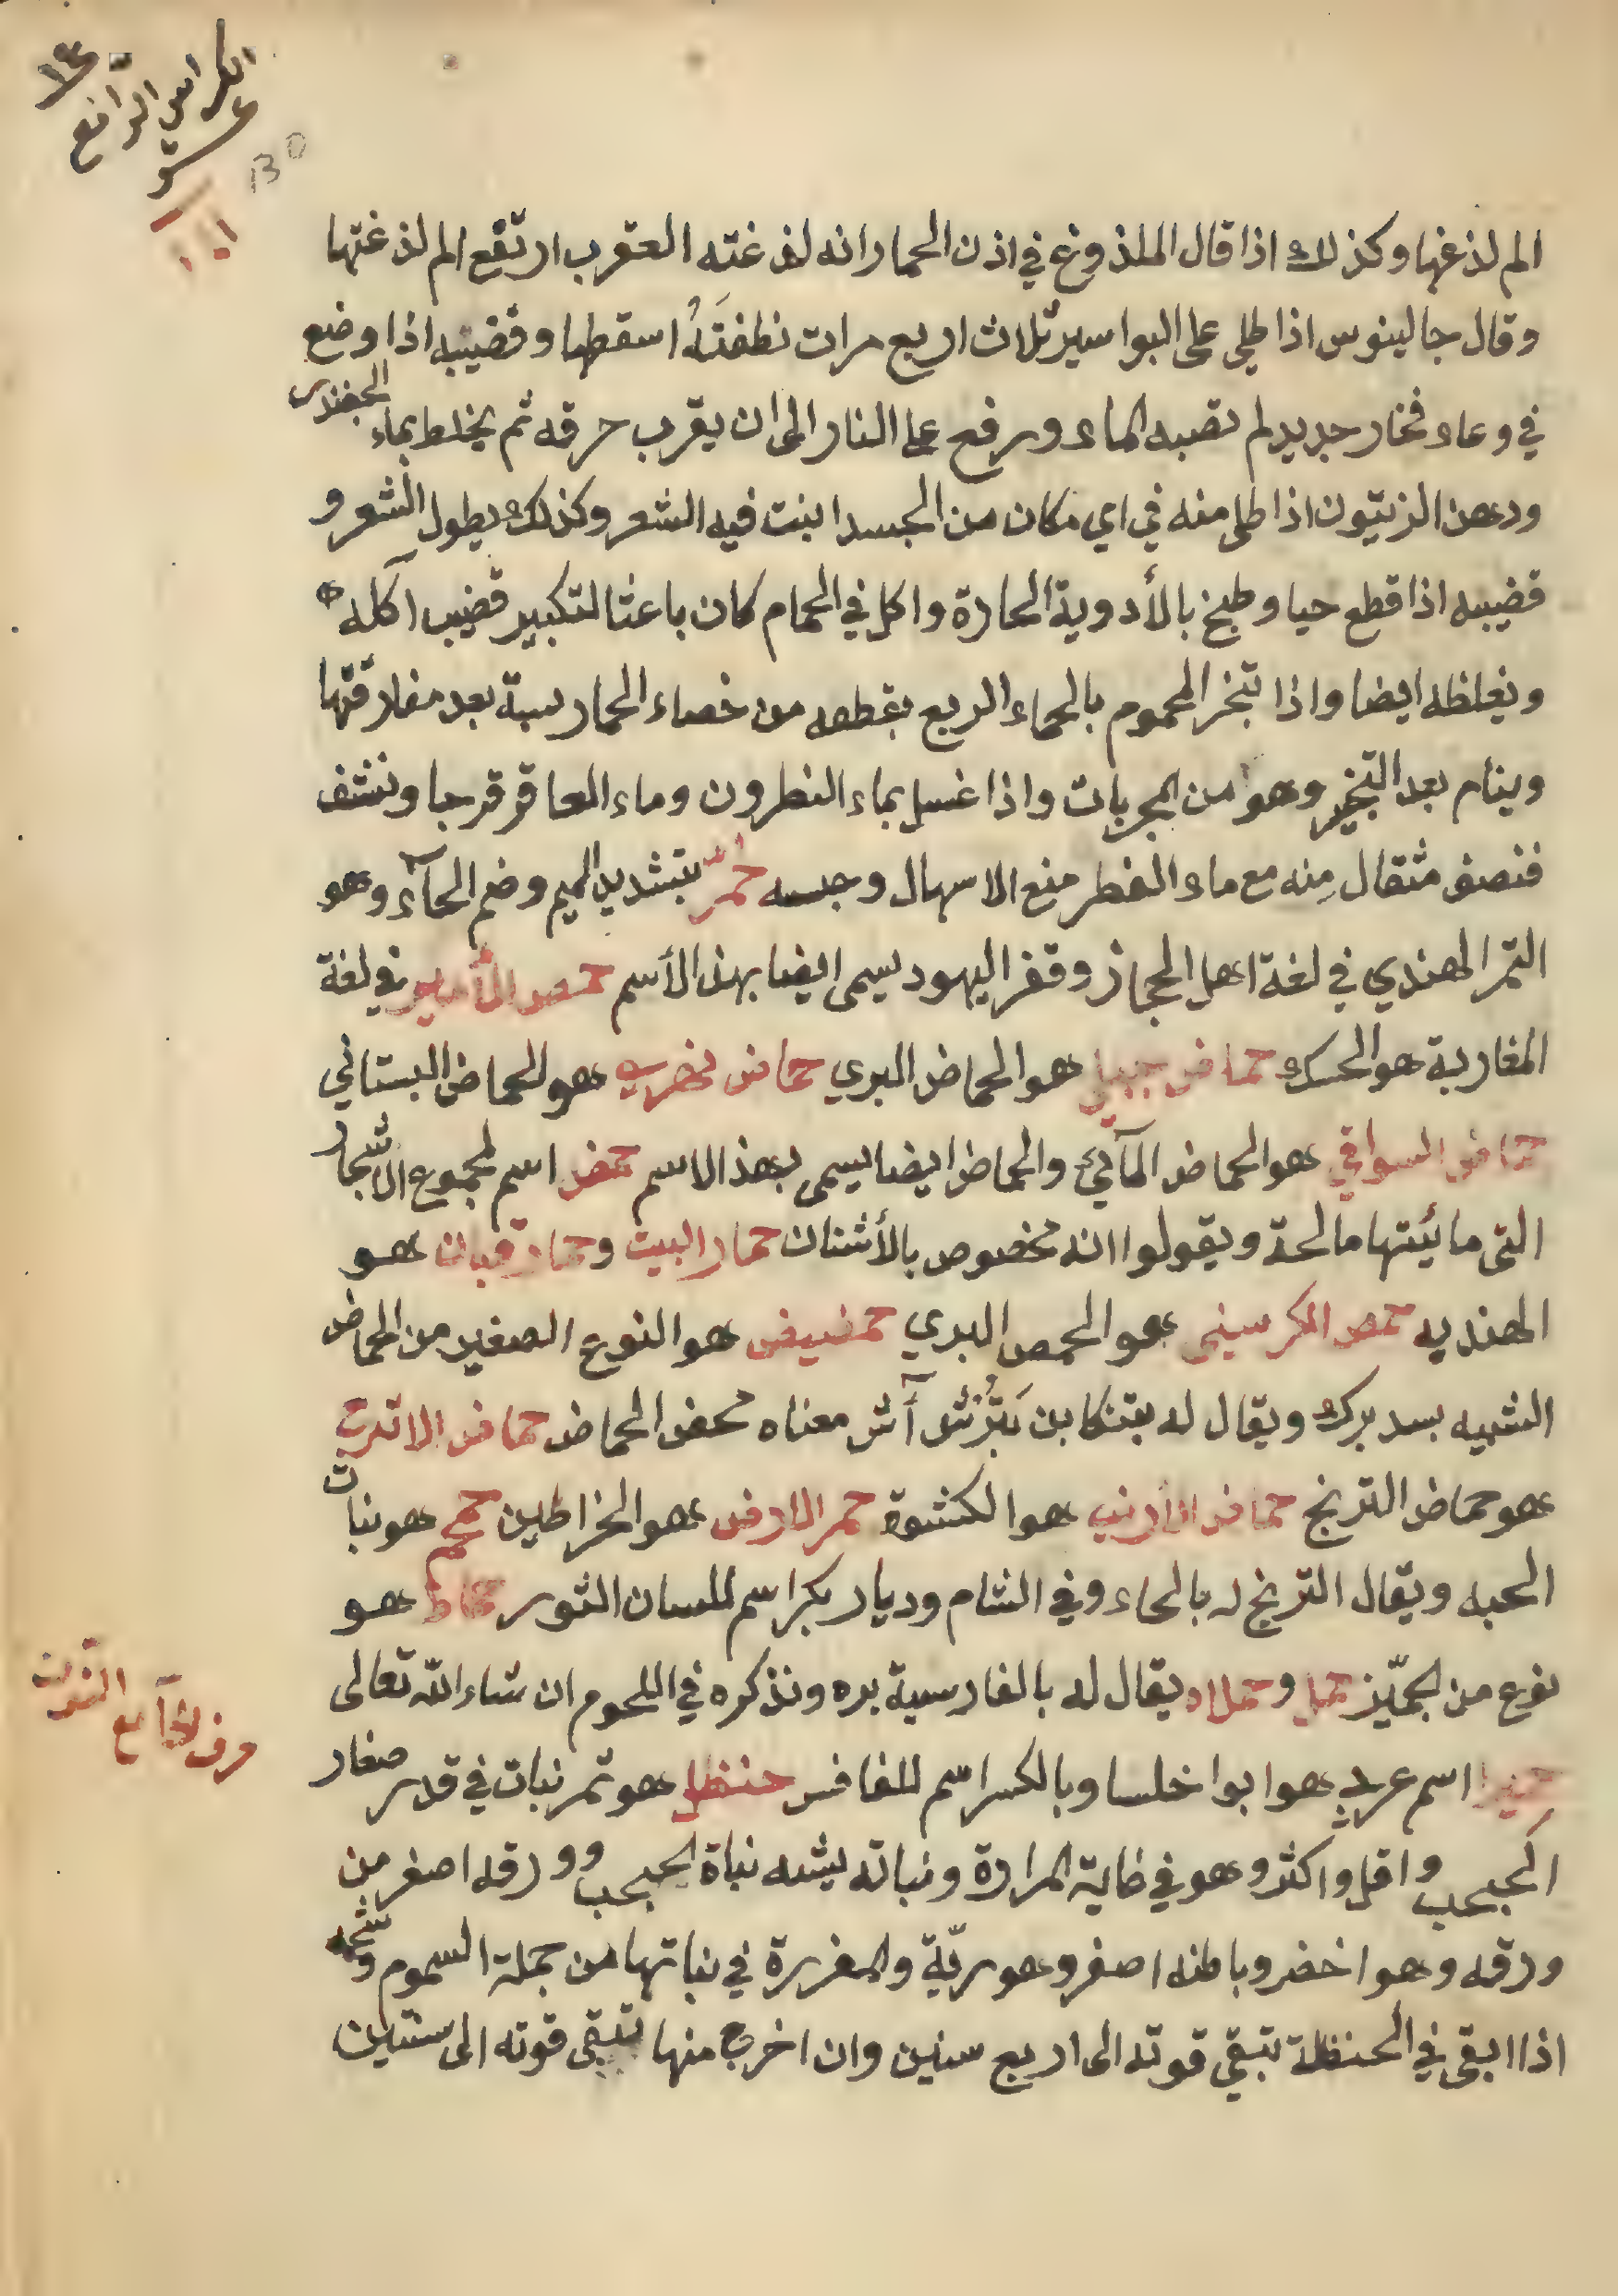 الكراس الرابع
عشر
١٤
130
الم لذغها وكذلك اذا قال الملذوغ في اذن الحمار انه لذغته العقرب ارتفع الم لذغتها
وقال جالينوس اذا طلي على البواسير ثلاث اربع مرات نظفتَهُ اسقطها وقضيبه اذا وضع
في وعاء فخار جديد لم تصبه الماء ورفع على النار الى ان يقرب حرقه ثم يخلط بماء
ودهن الزيتون اذا طلى منه في اي مكان من الجسد انبت فيه الشعر وكذلك يطول الشعر و
قضيبه اذا قطع حيا وطبخ بالأدوية الحارة واكل في الحمام كان باعثا لتكبير قضيب آكله
ويغلظه ايضا واذا تبخر المحموم بالحماء الربع بقطعه من خصاء الحمار سبة بعد مفارقتها
وينام بعد التبخير وهو من المجربات واذا غسل بماء النطرون وماء العاقر قرحا ونشف
فنصف مثقال مِنه مع ماء الفطر منع الاسهال وجسه حُمّر بتشديد الميم وضم الحآء وهو
التمر الهندي في لغة اهل الحجاز وقفر اليهود يسمى ايضا بهذ الأسم حمص الأمير في لغة
المغاربة هو الحسك حماض جبلي هو الحماض البري حماض نهري هو الحماض البستاني
حماض السواقي هو الحماض المآئي والحماض ايضا يسمى بهذ الاسم حمض اسم لمجموع الاشجار
التى مائيتها مالحة ويقولوا انه مخصوص بالأشنان حمار البيت وحمار قبان هو
الهنديه حمص الكرسينى هو الحمص البري حمضيض هو النوع الصغير من الحماض
الشبيه بسد برك ويقال له بتنكابن تَبْرُش آش معناه محض الحماض حماض الاترج
هو حماض الترنج حماض الأرنب هو الكشوة حمر الارض هو الخراطين حمحم هو نبات
الحبه ويقال الترنج له بالحاء وفي الشام وديار بكر اسم للسان الثور حماط هو
نوع من الجمّيز حمل وحملاء يقال له بالفارسية بره ونذكره في اللحوم ان شاء الله تعالى
حميرا اسم عربي هو ابوا خلسا وبالكسر اسم للفافس حنظل هو ثمر نبات في قدر صغار
الحبحب واقل واكثر وهو في غاية المرارة ونباته يشبه نباة الحبحب وورقه اصغر من
ورقه وهو اخضر وباطنه اصفر وهو ريّة والمغررة في نباتها من جملة السموم وشحمه
اذا ابقى في الحنظلة تبقي قوته الى اربع سنين وان اخرج منها تبقى قوته الى سنتين
حرف الحآ مع النون